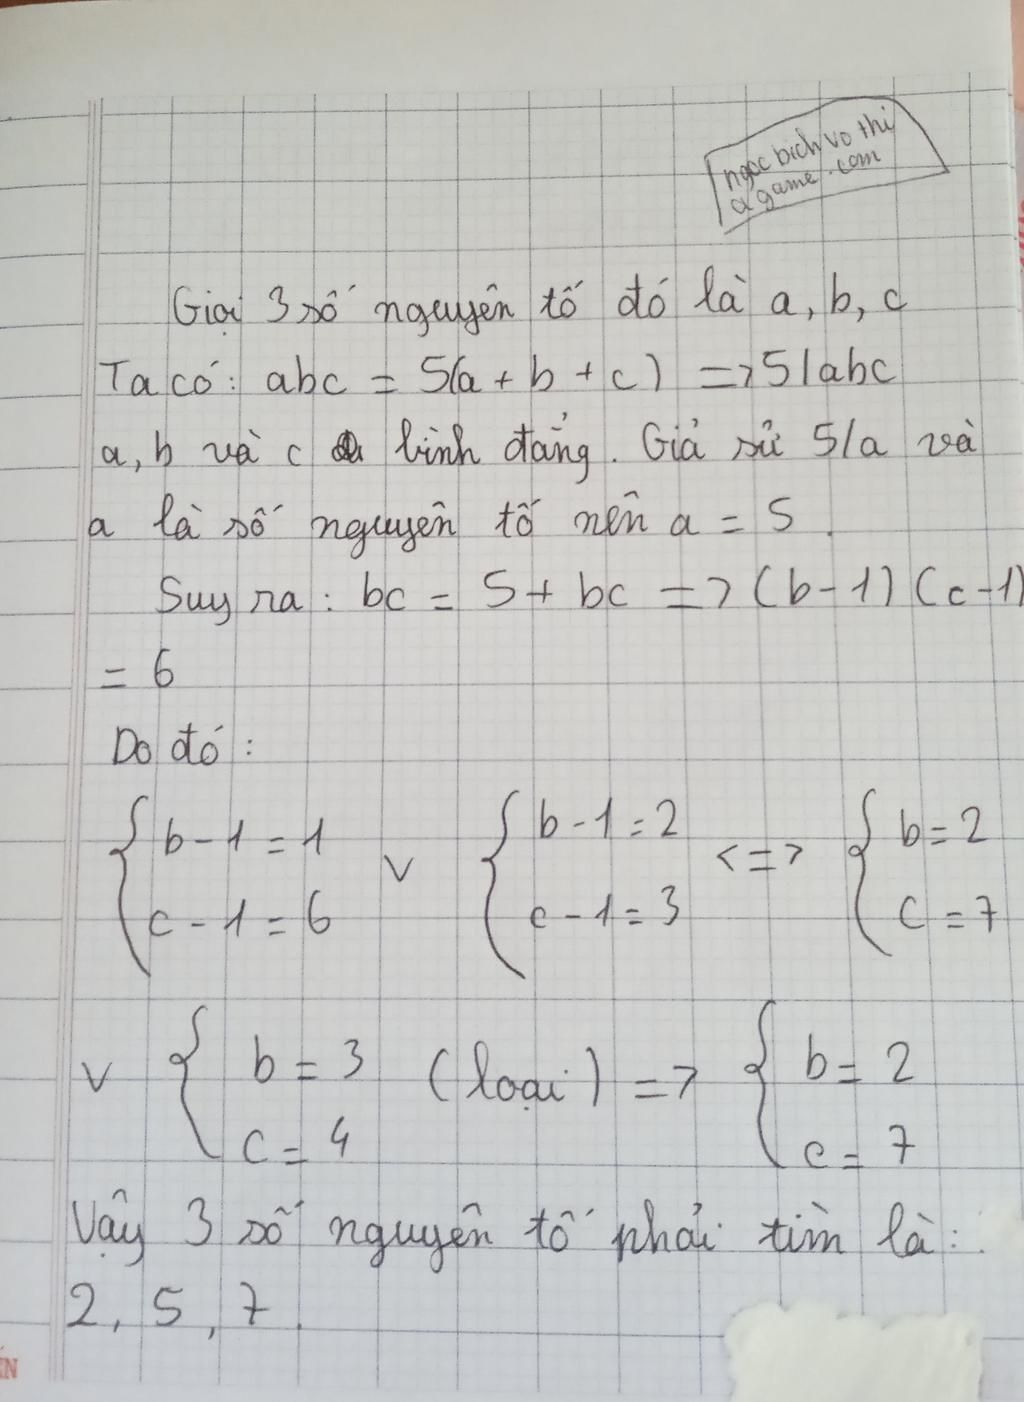 ngoc bich vo thi
a game.com
Gọi 3 số nguyên tố đó là a, b, c
Ta có: abc = 5(a + b + c) => 5/abc
a, b và c bình đẳng. Giả sử 5/a và
a là số nguyên tố nên a = 5.
Suy ra: bc = 5 + bc => (b-1) (c-1)
= 6
Do đó:
{ b-1 = 1 v { b-1 = 2 <=> { b = 2
c - 1 = 6 c - 1 = 3 c = 7
v { b = 3 (loại) => { b = 2
c = 4 c = 7
Vậy 3 số nguyên tố phải tìm là:
2, 5, 7.